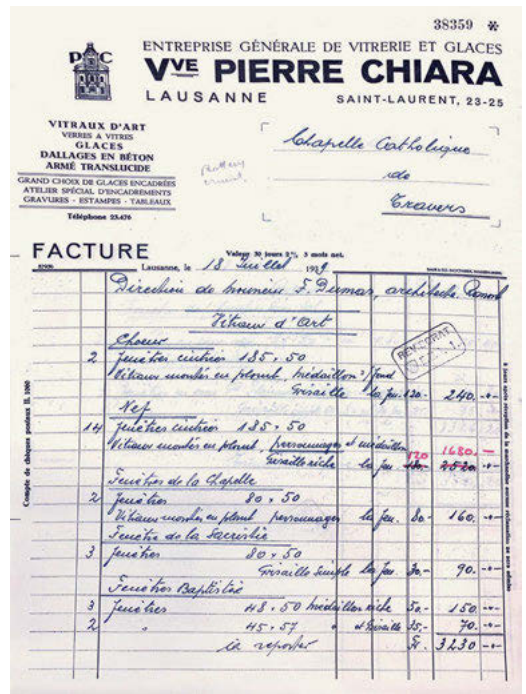 38359 *
P C
ENTREPRISE GÉNÉRALE DE VITRERIE ET GLACES
VVE PIERRE CHIARA
LAUSANNE SAINT-LAURENT, 23-25
VITRAUX D'ART
VERRES A VITRES
GLACES
DALLAGES EN BÉTON
ARMÉ TRANSLUCIDE
GRAND CHOIX DE GLACES ENCADRÉES
ATELIER SPÉCIAL D'ENCADREMENTS
GRAVURES - ESTAMPES - TABLEAUX
Téléphone 25.476
Chapelle Catholique
de
Travers
FACTURE
Valeur 30 jours 2%, 3 mois net.
Lausanne, le 18 Juillet 19
Direction de monsieur F. Dumas, architecte Romont
Vitraux d'Art
Choeur
2 fenêtres cintrées 185 × 50
Vitraux montés en plomb, médaillon s/fond
Grisaille les fen. 120.- 240.-
Nef
14 fenêtres cintrées 185 × 50
Vitraux montés en plomb, personnages et médaillon
Grisaille riche la fen. 120 1680.-
180.- 2520.-
Fenêtres de la Chapelle
2 fenêtres 80 × 50
Vitraux montés en plomb personnages la fen. 80.- 160.-
Fenêtre de la Sacristie
3 fenêtres 80 × 50
Grisaille simple les fen. 30.- 90.-
Fenêtres Baptistère
3 fenêtres 48 × 50 médaillon riche 50.- 150.-
2 " 45 × 57 " et Grisaille 35.- 70.-
à reporter Fr. 3230.-
Compte de chèques postaux II. 1000